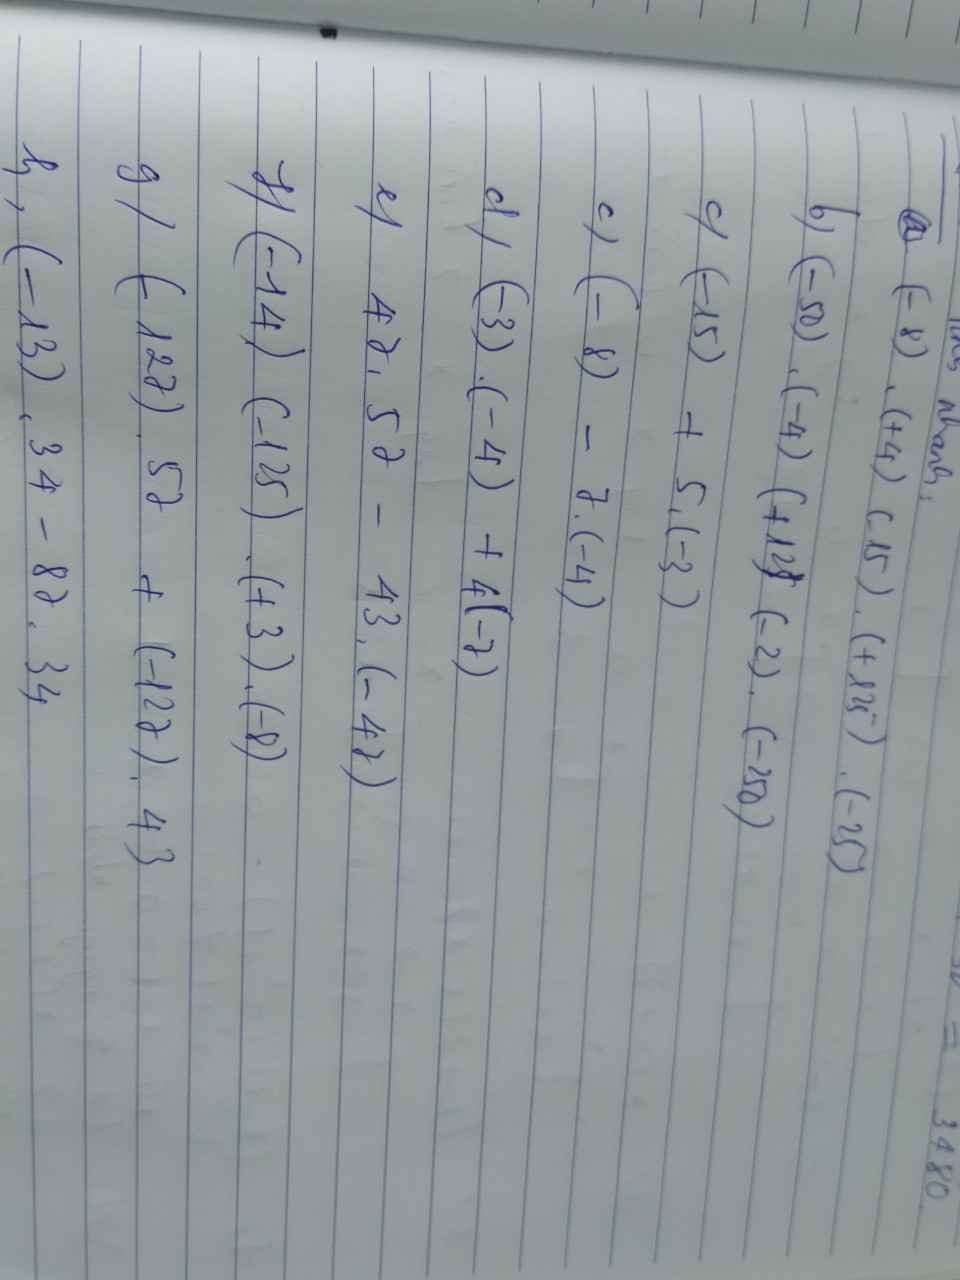 = 3480
nhanh,
a) (-8).(+4) (-15).(+125).(-25)
b) (-50).(-4) (+125) (-2).(-250)
c) (-15) + 5.(-3)
c) (-8) - 7.(-4)
d) (-3).(-4) + 4(-7)
e) 47.57 - 43.(-47)
f) (-14) (-125).(+3).(-8)
g) (-127).57 + (-127).43
h, (-13).34 - 87.34